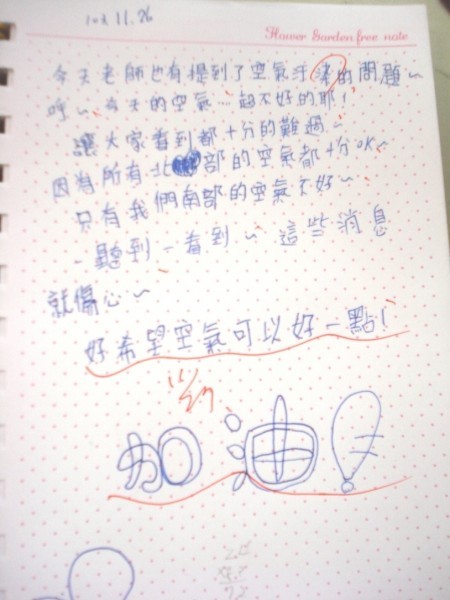 103 11.26
Flower Garden free note
今天老師也有提到了空氣汙染的問題~
呼~今天的空氣...超不好的耶!
讓大家看到都十分的難過~
因為所有北部的空氣都十分OK~
只有我們南部的空氣不好~
一聽到一看到~這些消息
就傷心~
好希望空氣可以好一點!
11/27
加油!